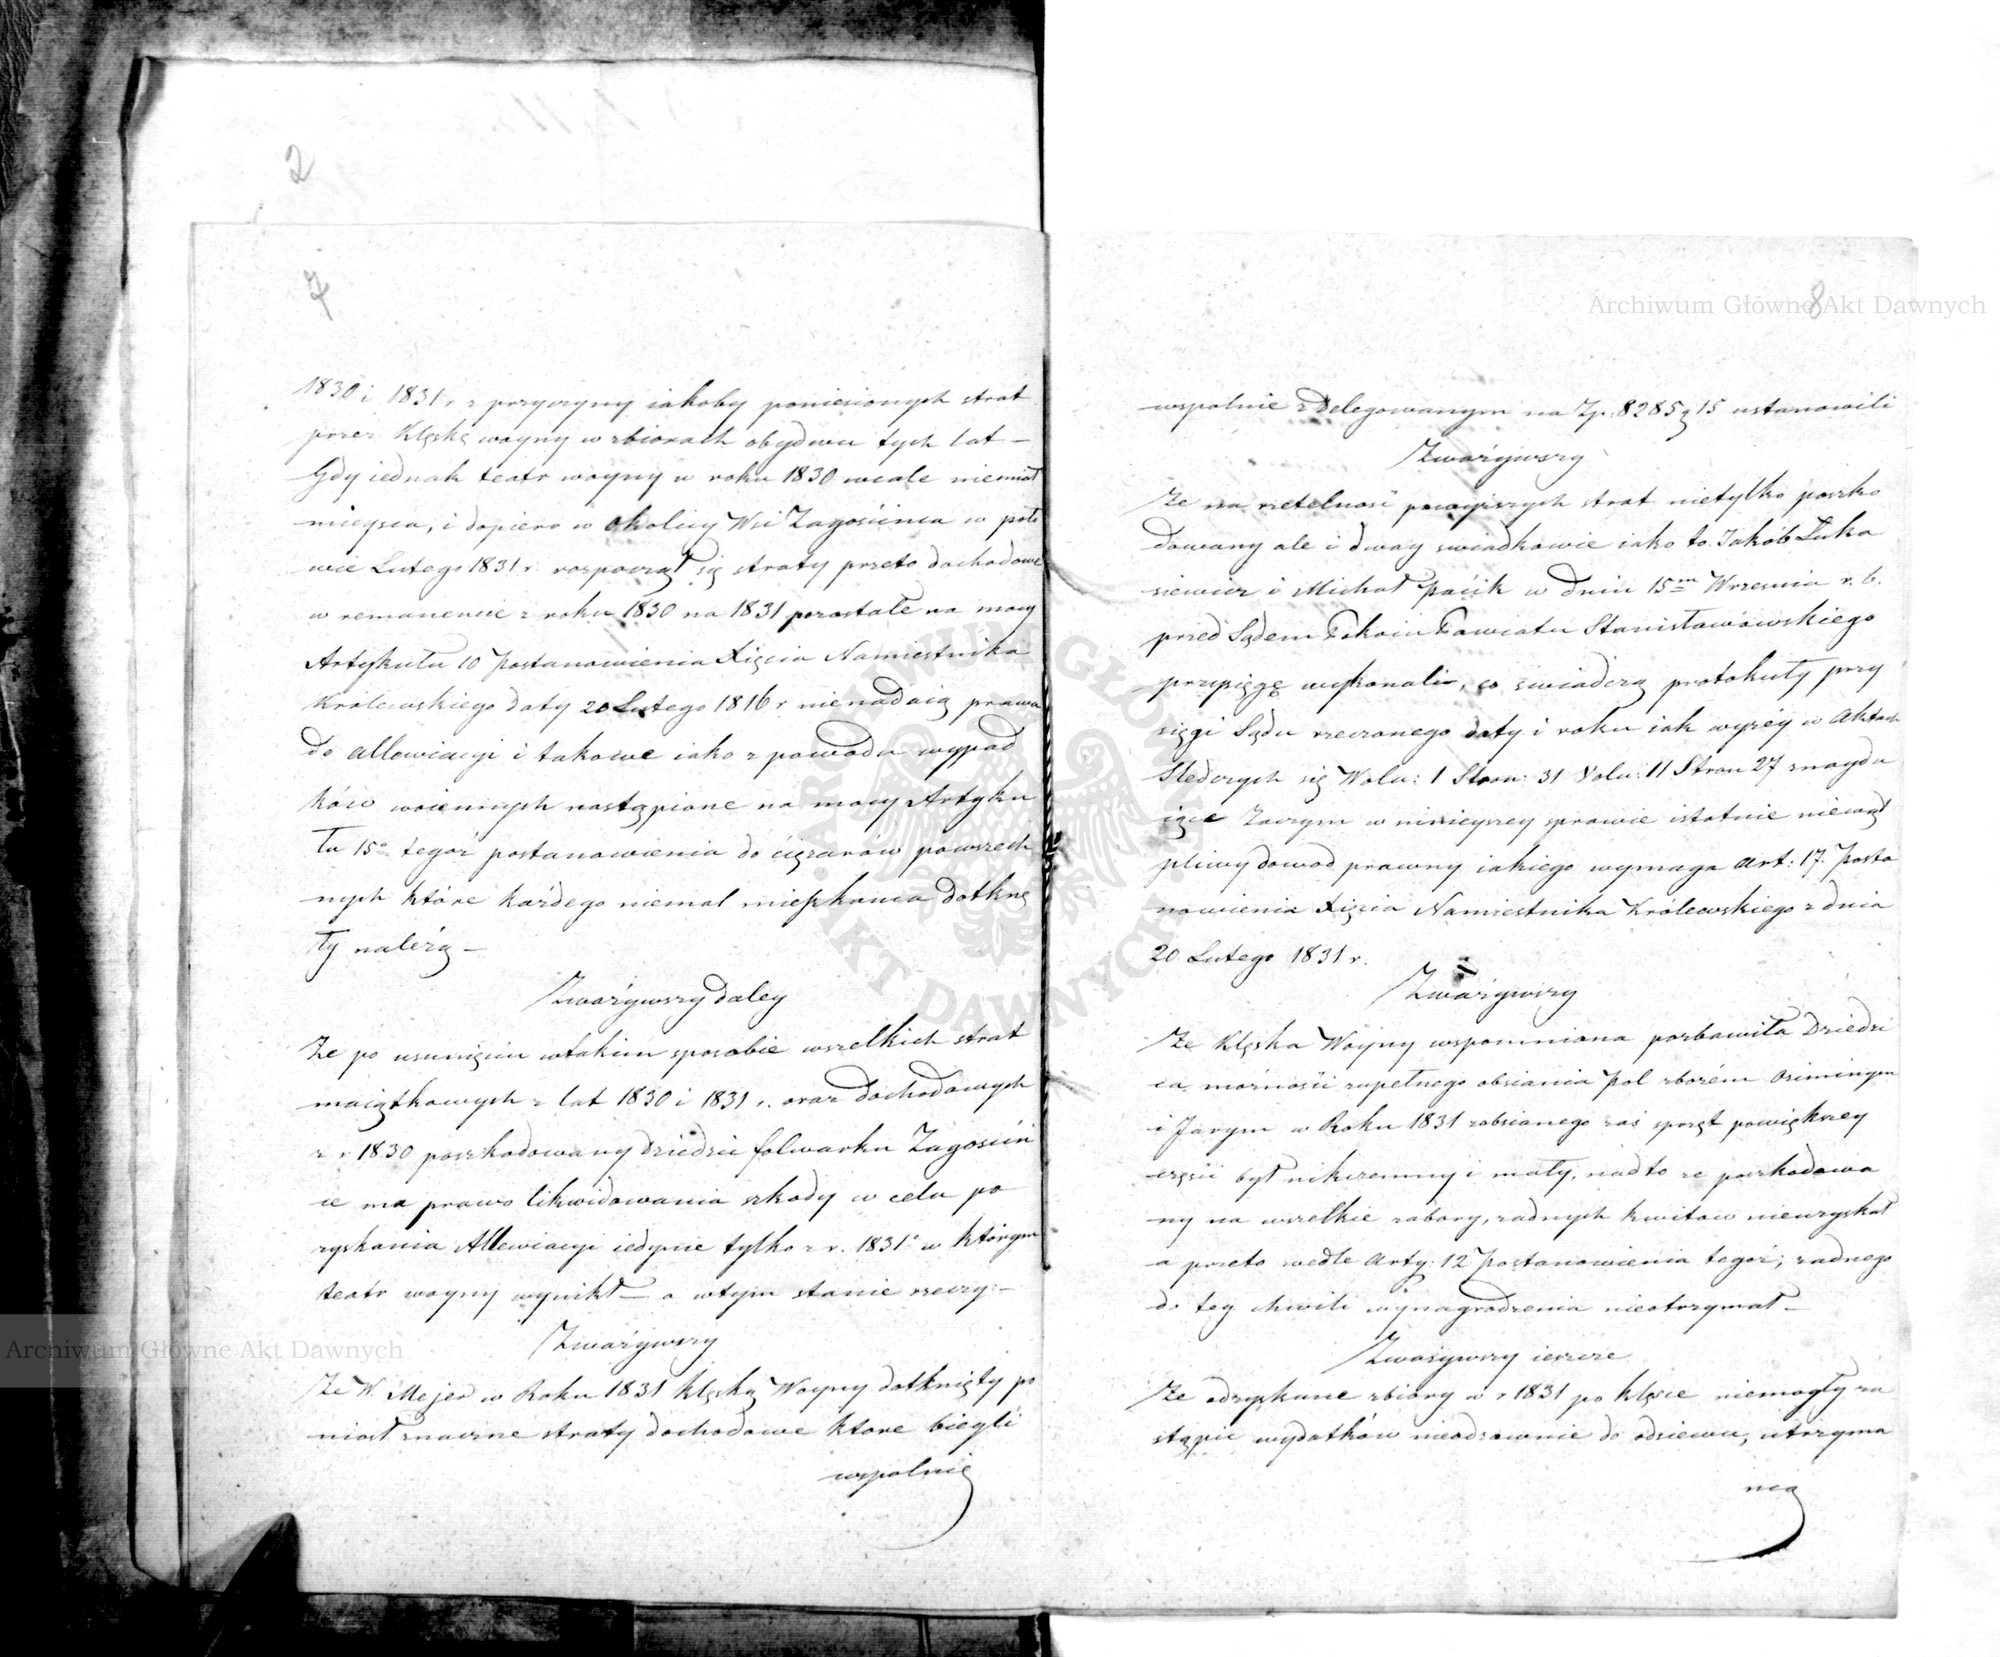 2
7
1830 i 1831 r. z przyczyny iakoby poniesionych strat
przez Klęskę woyny w zbiorach obydwu tych lat –
Gdy iednak teatr woyny w roku 1830 wcale niemiał
mieysca, i dopiero w okolicy Wsi Zagościnca w poło
wie Lutego 1831 r. rozpoczął się straty przeto dochodowe
w remanencie z roku 1830 na 1831 pozostałe na mocy
Artykułu 10 Postanowienia Xięcia Namiestnika
Królewskiego daty 20 Lutego 1816 r. nienadaią prawa
do allewiacyi i takowe iako z powodu wypad
ków woiennych nastąpione na mocy Artyku
łu 15º tegoż postanowienia do ciężarów powszech
nych które każdego niemal mieszkańca dotknę
ły należą –
Zważywszy daley
Ze po usunięciu wtakim sposobie wszelkich strat
maiątkowych z lat 1830 i 1831 r. oraz dochodowych
z r. 1830 poszkodowany Dziedzic folwarku Zagościń
ce ma prawo likwidowania szkody w celu po
zyskania Allewiacyi iedynie tylko z r. 1831º w którym
teatr woyny wynikł – a wtym stanie rzeczy –
Zważywszy
Ze W. Mejer w Roku 1831 klęską Woyny dotknięty po
niosł znaczne straty dochodowe które biegli
wspolnie
8
wspolnie z Delegowanym na Zp. 8285 g 15 ustanowili
Zważywszy
Ze na rzetelność powyższych strat nietylko poszko
dowany ale i dway swiadkowie iako to Jakób Łuka
siewicz i Michał Paćik w dniu 15m Wrzesnia r. b.
przed Sądem Pokoiu Powiatu Stanisławowskiego
przysięgę wykonali, co swiadczą protokuły przy
sięgi Sądu rzeczonego daty i roku iak wyżéy w Aktach
Sledczych się Wolu: 1 Stron: 31 Volu: 11 Stron 27 znaydu
iące Zaczym w ninieyszey sprawie istotnie niewąt
pliwy dowod prawny iakiego wymaga Art: 17. Posta
nowienia Xięcia Namiestnika Królewskiego z dnia
20 Lutego 1831 r.
Zważywszy
Ze Klęska Woyny wspomniona pozbawiła Dziedzi
ca możności zupełnego obsiania Pol zbożém Oziminym
i Jarym w Roku 1831 zabsianego zaś sprzęt powiększey
części był nikczemny i mały, nadto ze poszkodowa
ny na wszelkie zabory, zadnych kwitow nieuzyskał
a przeto wedle Arty: 12 Postanowienia tegoż, zadnego
do tey chwili wynagrodzenia nieotrzymał –
Zważywszy ieszcze
Ze odzyskane zbiory w r 1831 po klęsce niemogły za
stąpić wydatków nieodzownie do odziewu, utrzyma
nia
Archiwum Główne Akt Dawnych
Archiwum Główne Akt Dawnych
ARCHIWUM GŁÓWNE · AKT DAWNYCH ·